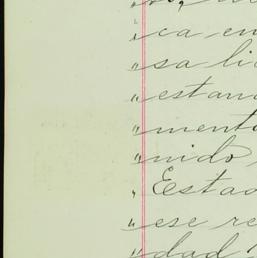 "ca en
"sa li
"estan
"mento
"nido
"Estad
"ese re
"dad